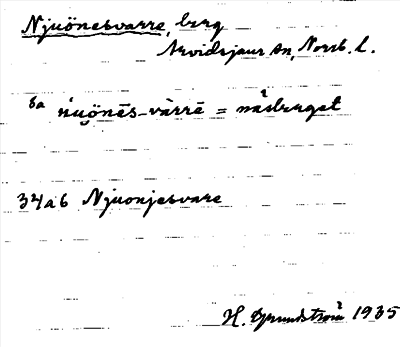 Njuönesvarre, berg
Arvidsjaur sn, Norrb. l.
sa ńuönēs-vàrrē = näsberget
34a6 Njuonjesvare
H. Grundström 1935